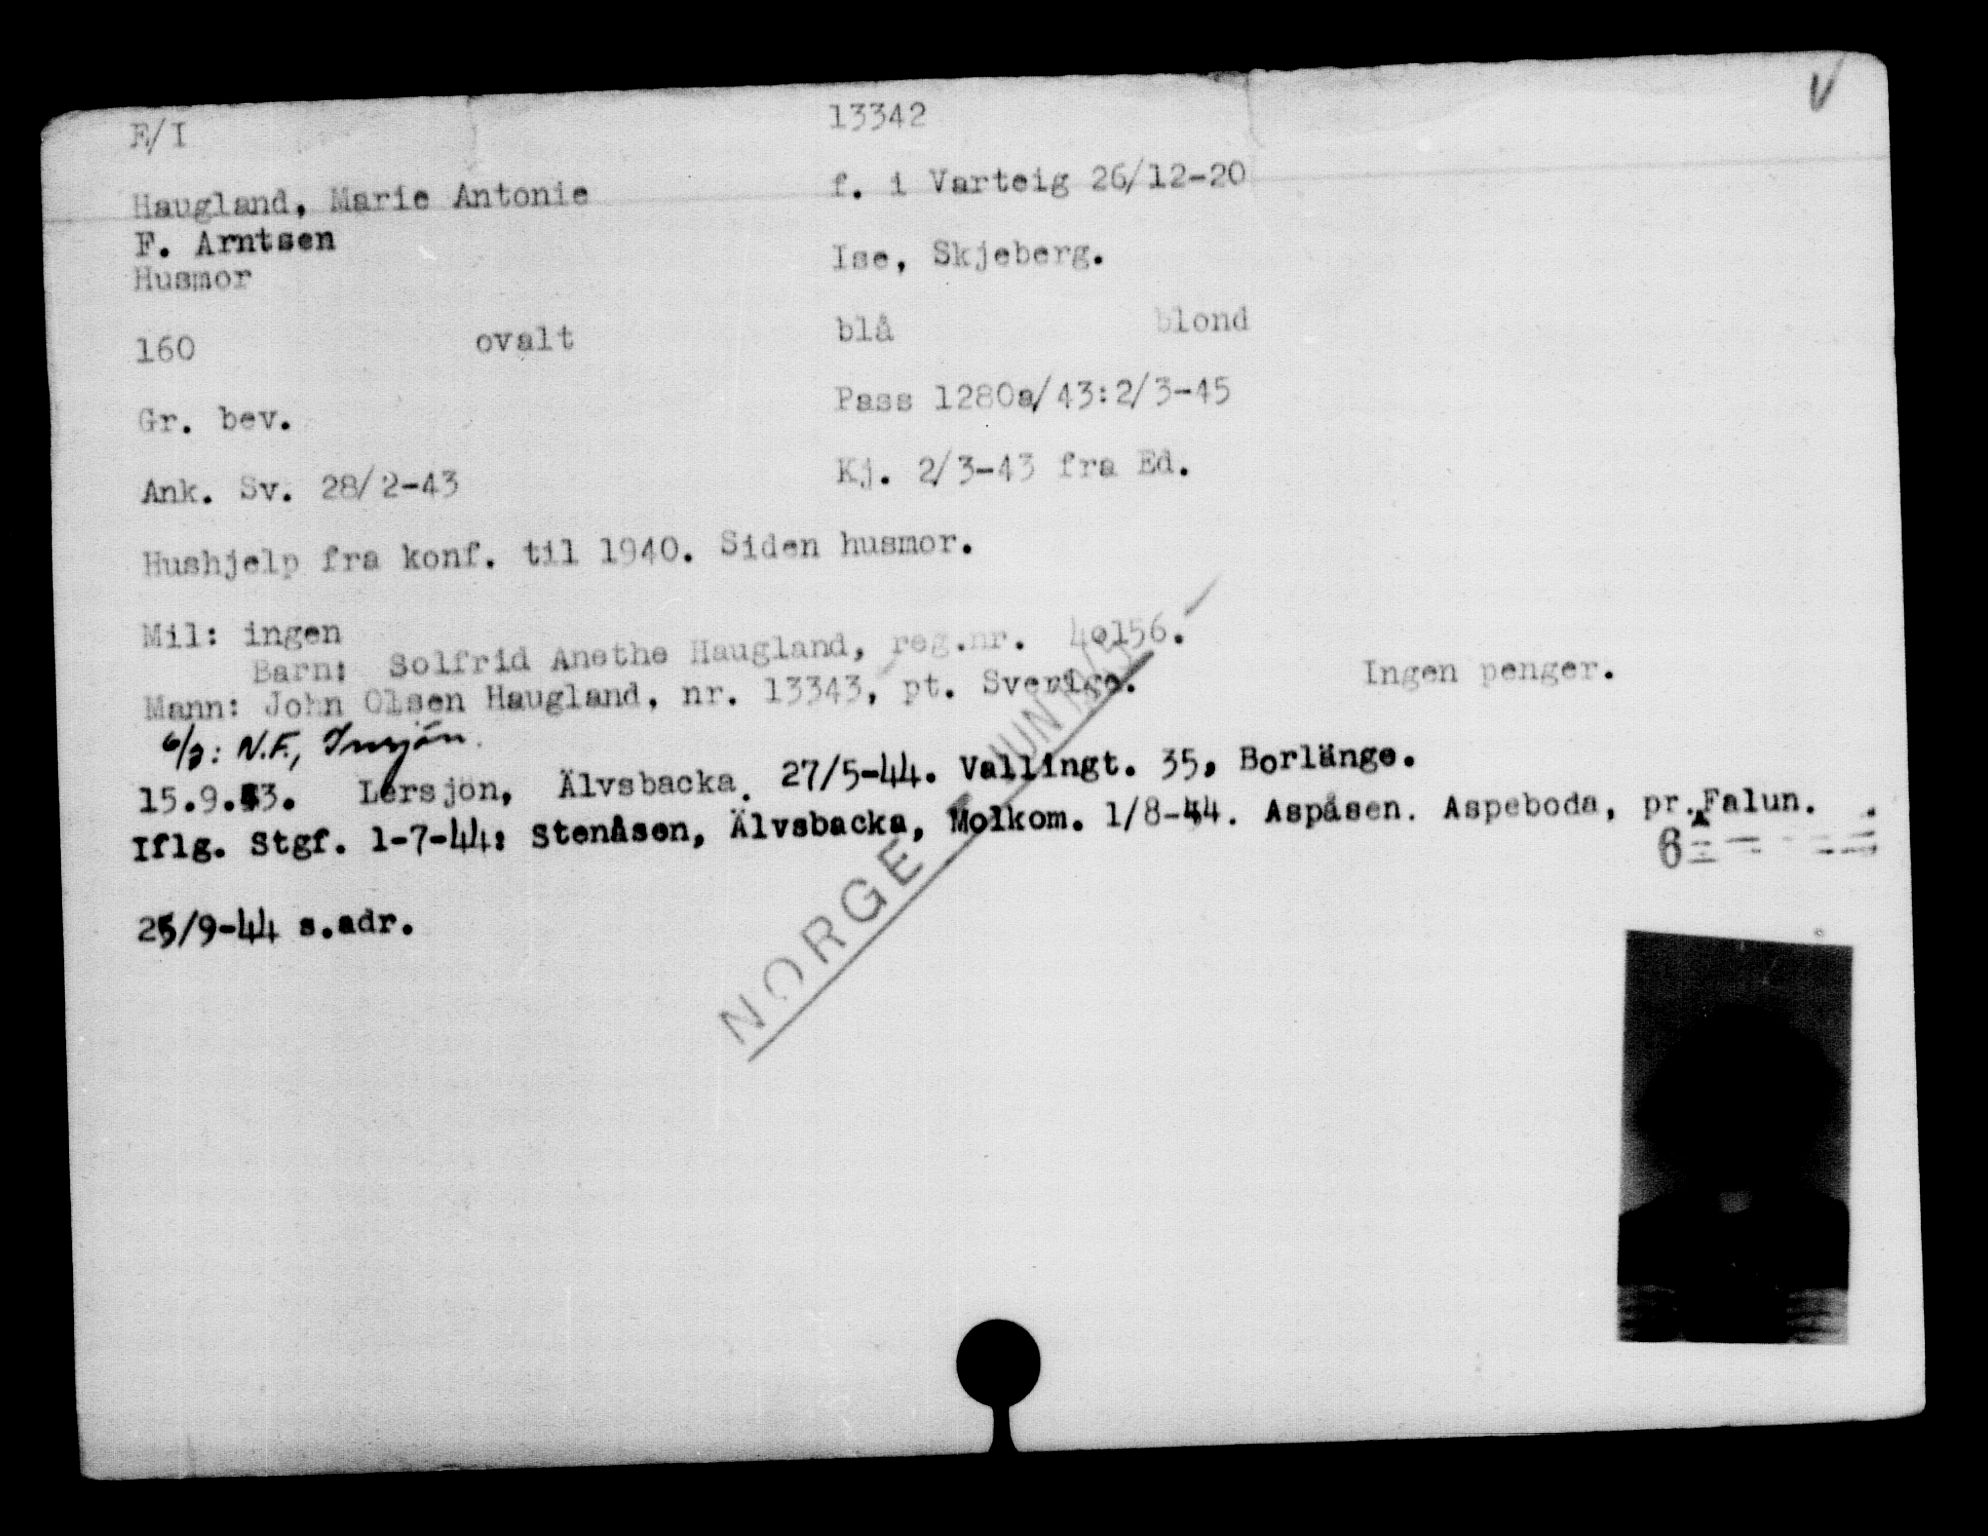 E/I 13342
Haugland, Marie Antonie f. i Varteig 26/12-20
F. Arntsen
Husmor Ise, Skjeberg.
160 ovalt blå blond
Gr. bev. Pass 1280a/43:2/3-45
Ank. Sv. 28/2-43 Kj. 2/3-43 fra Ed.
Hushjelp fra konf. til 1940. Siden husmor.
Mil: ingen
Barn: Solfrid Anethe Haugland, reg.nr. 40156.
Mann: John Olsen Haugland, nr. 13343, pt. Sverige. Ingen penger.
6/3: N.F., Insjön.
15.9.43. Lersjön, Älvsbacka. 27/5-44. Vallingt. 35, Borlänge.
Iflg. Stgf. 1-7-44: Stenåsen, Älvsbacka, Molkom. 1/8-44. Aspåsen. Aspeboda, pr. Falun.
6
25/9-44 s.adr.
NORGE JUNI